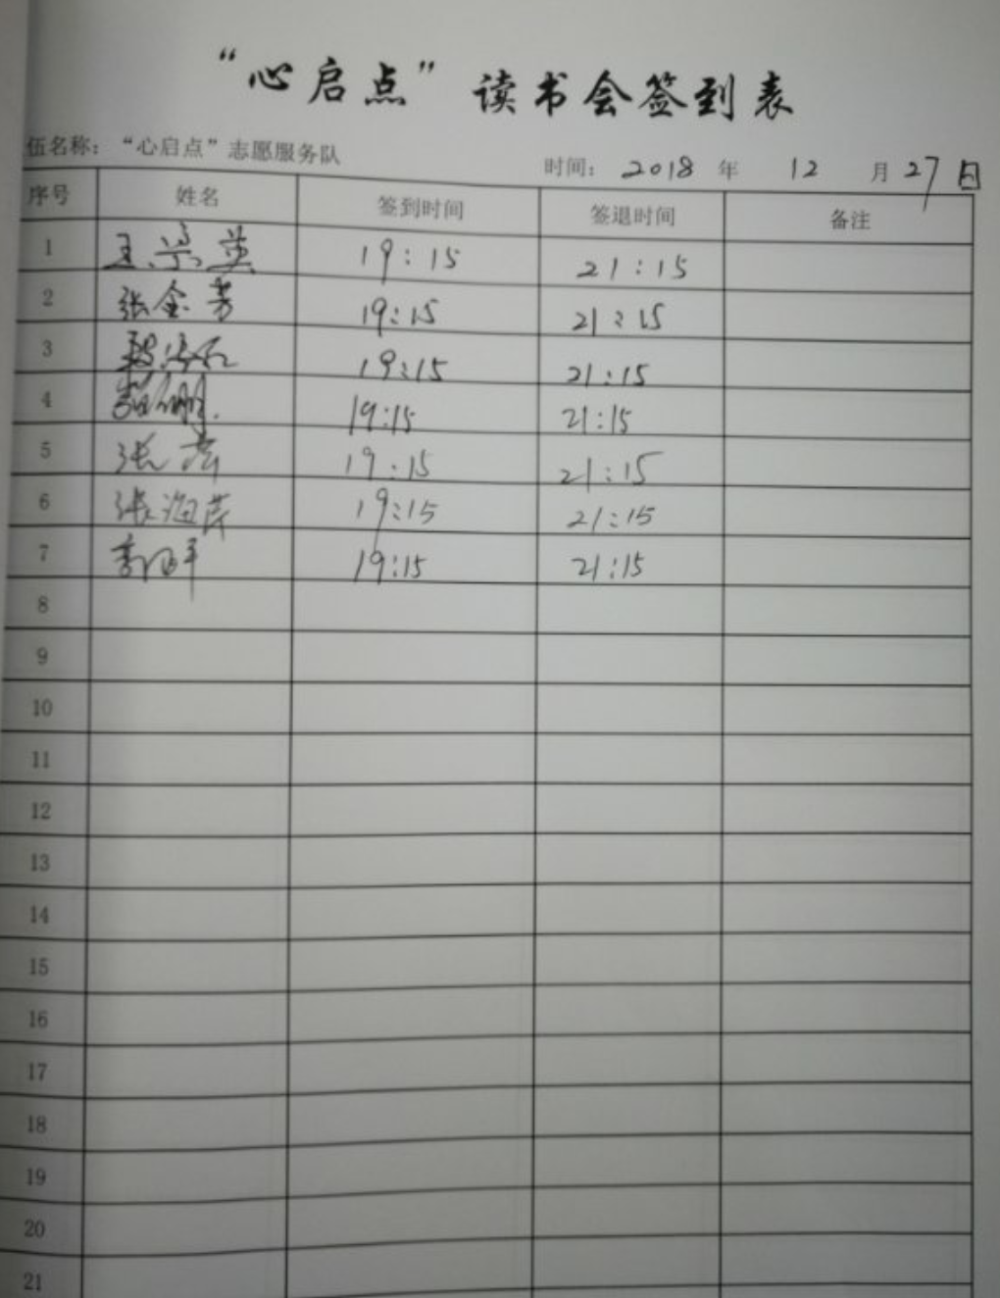 “心启点”读书会签到表
伍名称：“心启点”志愿服务队 时间：2018年12月27日
序号 姓名 签到时间 签退时间 备注
1 王宗英 19:15 21:15
2 张金芳 19:15 21:15
3 19:15 21:15
4 19:15 21:15
5 张 19:15 21:15
6 张海芹 19:15 21:15
7 19:15 21:15
8
9
10
11
12
13
14
15
16
17
18
19
20
21